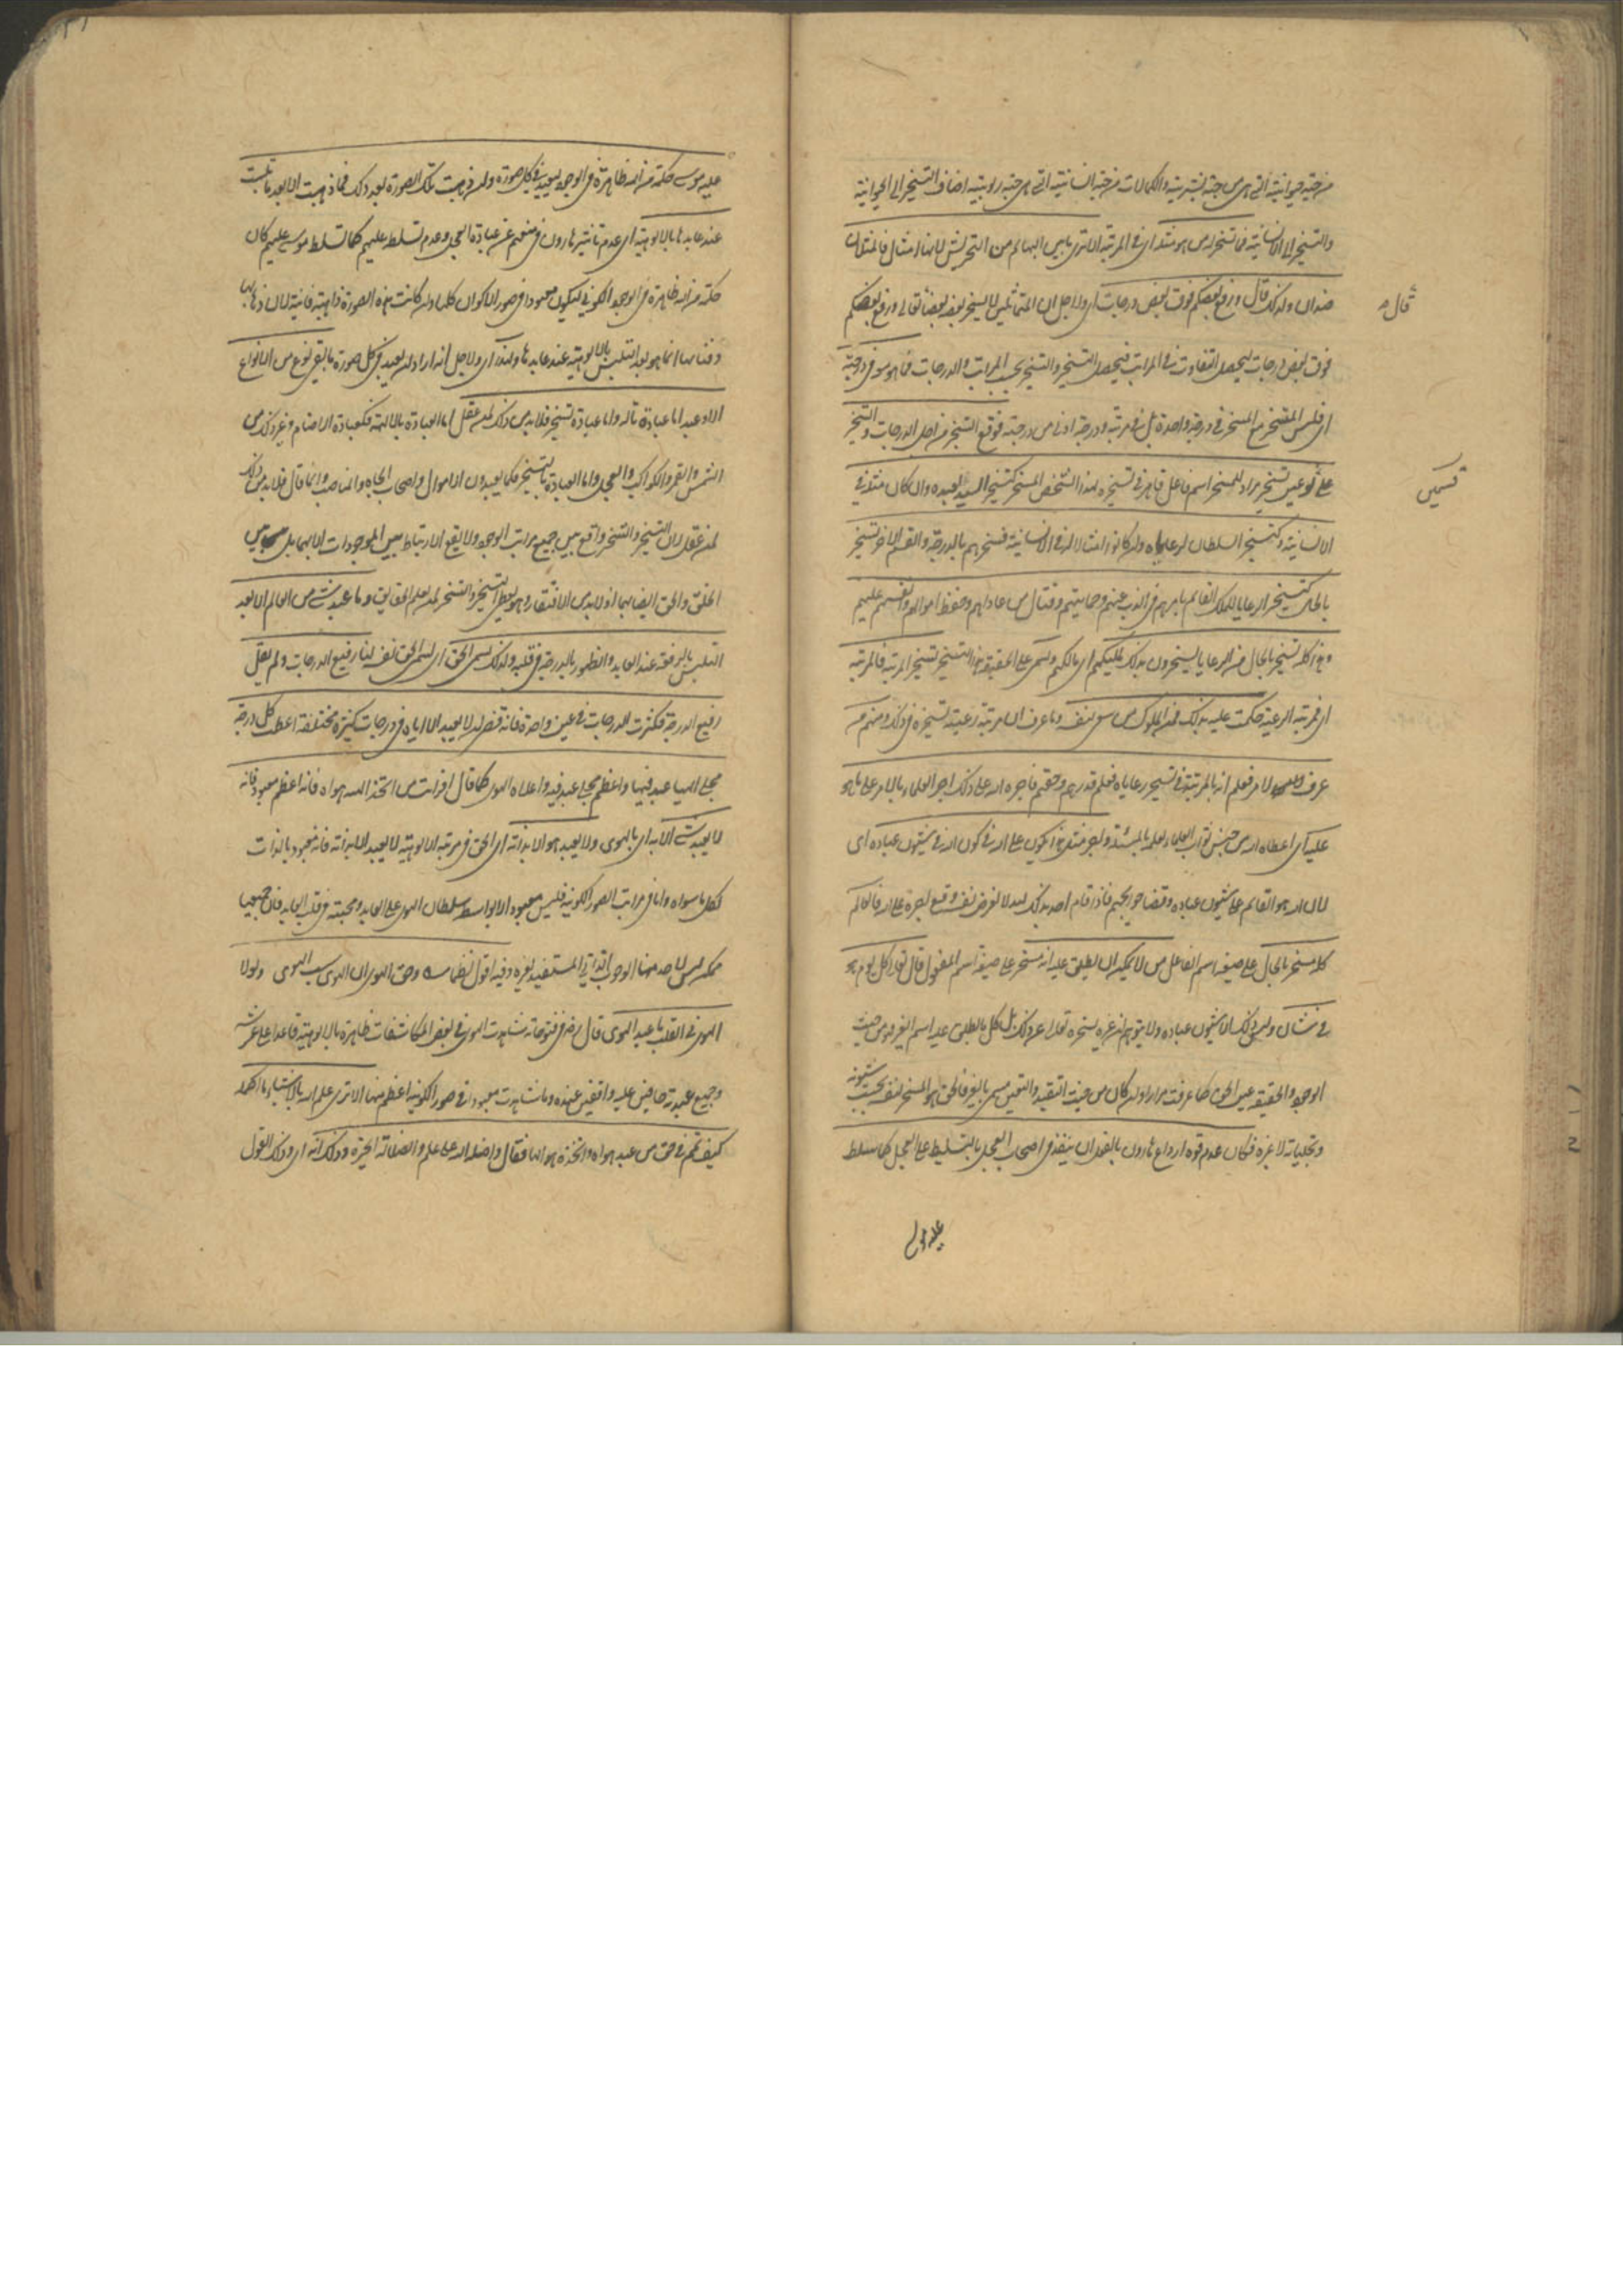 من جهة حيوانيته التي هي من جهة بشريته والكمالات من جهة انسانيته التي هي جهة ربوبيته اضاف التسخير الى الحيوانية
والتسخير الى الانسانية فما تسخر له من هو مثله اي في المرتبة الا ترى ما بين البهائم من التحريش لانها امثال فالمثلان
ضدان ولذلك قال ورفع بعضكم فوق بعض درجات اي ولاجل ان المتماثلين لا يسخر بعضه بعضا قال ورفع بعضكم
قال
فوق بعض درجات ليحصل التفاوت في المراتب فيحصل التسخير والتسخر بحسب المراتب والدرجات فما هو معه في درجته
اي فليس المتسخر مع المسخر في درجة واحدة بل في مرتبة ودرجة ادنى من درجته فوقع التسخير من اجل الدرجات والتسخير
على نوعين تسخير مراد للمسخر اسم فاعل قاهر في تسخيره لهذا الشخص المسخر كتسخير السيد لعبده وان كان مثله في
قسمين
الانسانية وكتسخير السلطان لرعاياه وان كانوا امثالا له في الانسانية فسخرهم بالدرجة والقسم الاخر تسخير
بالحال كتسخير الرعايا للملك القائم بامرهم في الذب عنهم وحمايتهم وقتال من عاداهم وحفظ اموالهم وانفسهم عليهم
وهذا كله تسخير بالحال من الرعايا يسخرون بذلك مليكهم اي مالكهم ويسمى على الحقيقة هذا التسخير تسخير المرتبة فالمرتبة
اي مرتبة الرعية حكمت عليه بذلك فمن الملوك من سعى لنفسه وما عرف ان مرتبة رعيته تسخره في ذلك ومنهم من
عرف الامر فعلم انه بالمرتبة في تسخير رعاياه فعلم قدرهم وحقهم فآجره الله على ذلك اجر العلماء بالامر على ما هو
عليه اي اعطاه الله من جنس ثواب العلماء لعلمه بالمسئلة واجر مثل هذا يكون على الله في كون الله في شئون عباده اي
لان الله هو القائم على شئون عباده وقضاء حوائجهم فاذا قام احد بذلك لله لا لغرض نفسه وقع اجره على الله فالعالم
كله مسخر بالحال على صيغة اسم الفاعل من لا يمكن ان يطلق عليه انه مسخر على صيغة اسم المفعول قال تعالى كل يوم هو
في شان وليس ذلك الا شئون عباده ولا يتوهم ان غيره يسخره تعالى عن ذلك بل كل ما يطلق عليه اسم الغير فهو من حيث
الوجود والحقيقة عين الحق كما عرفت مرارا وان كان من حيث التقيد والتعين يسمى بالغير فالحق هو المسخر لنفسه بحسب شئونه
وتجلياته لا غيره فكان عدم قوة ارداع هارون بالفعل ان ينفذ في اصحاب العجل بالتسليط على العجل كما سلط
عليه مو
عليه موسى حكمة من الله ظاهرة في الوجود ليعبد في كل صورة وان ذهبت تلك الصورة بعد ذلك فما ذهبت الا بعد ما تلبست
عند عابدها بالالوهية اي عدم تاثير هارون في منعهم عن عبادة العجل وعدم تسلطه عليهم كما تسلط موسى عليهم كان
حكمة من الله ظاهرة في الوجود الكوني ليكون معبودا في صور الاكوان كلها وان كانت هذه الصورة ذاهبة فانية لان ذهابها
وفناءها انما هو بعد التلبس بالالوهية عند عابدها ولهذا اي ولاجل انه اراد ان يعبد في كل صورة ما بقي نوع من الانواع
الا وعبد اما عبادة تاله واما عبادة تسخير فلا بد من ذلك لمن عقل اما العبادة بالالهية فكعبادة الاصنام وغير ذلك من
الشمس والقمر والكواكب والعجل واما العبادة بالتسخير فكما يعبدون الاموال واصحاب الجاه والمناصب وانما قال فلا بد من ذلك
لمن عقل لان التسخير والتسخر واقع بين جميع مراتب الوجود ولا يقع الارتباط بين الموجودات الا بهما بل بين
الخلق والحق ايضا بهما اذ لا بد من الافتقار وهو يعطي التسخير والتسخر لمن يعلم الحقايق وما عبد شيء من العالم الا بعد
التلبس بالرفعة عند العابد والظهور بالدرجة في قلبه ولذلك يسمى الحق اي تسمى الحق نفسه لنا رفيع الدرجات ولم يقل
رفيع الدرجة فكثرت الدرجات في عين واحدة فانه قضى ان لا يعبد الا اياه في درجات كثيرة مختلفة اعطت كل درجة
مجلى الهيا عبد فيها واعظم مجلى عبد فيه واعلاه الهوى كما قال افرايت من اتخذ الهه هواه فانه اعظم معبود فانه
لا يعبد شيء الا به اي بالهوى ولا يعبد هو الا بذاته اي الحق في مرتبة الالوهية لا يعبد الا بذاته فانه معبود بالذات
لكل ما سواه واما في مراتب الصور الكونية فليس معبودا الا بواسطة سلطان الهوى على العابد ومحبته في قلب العابد فان
ممكن ليس لاحد منها الوجوب الذاتي المستفيد لغيره وفيه اقول نظما وحق الهوى ان الهوى سبب الهوى ولولا
الهوى في القلب ما عبد الهوى قال رضي في فتوحاته شاهدت الهوى في بعض المكاشفات ظاهرا بالالوهية قاعدا على عرشه
وجميع عبدته حافين عليه واقفين عنده وما شاهدت معبودا في صور الكونية اعظم منها الا ترى علم الله بالاشياء ما اكمله
كيف تمم في حق من عبد هواه واتخذه الها فقال واضله الله على علم والضلالة الحيرة وذلك انه اي وذلك القول